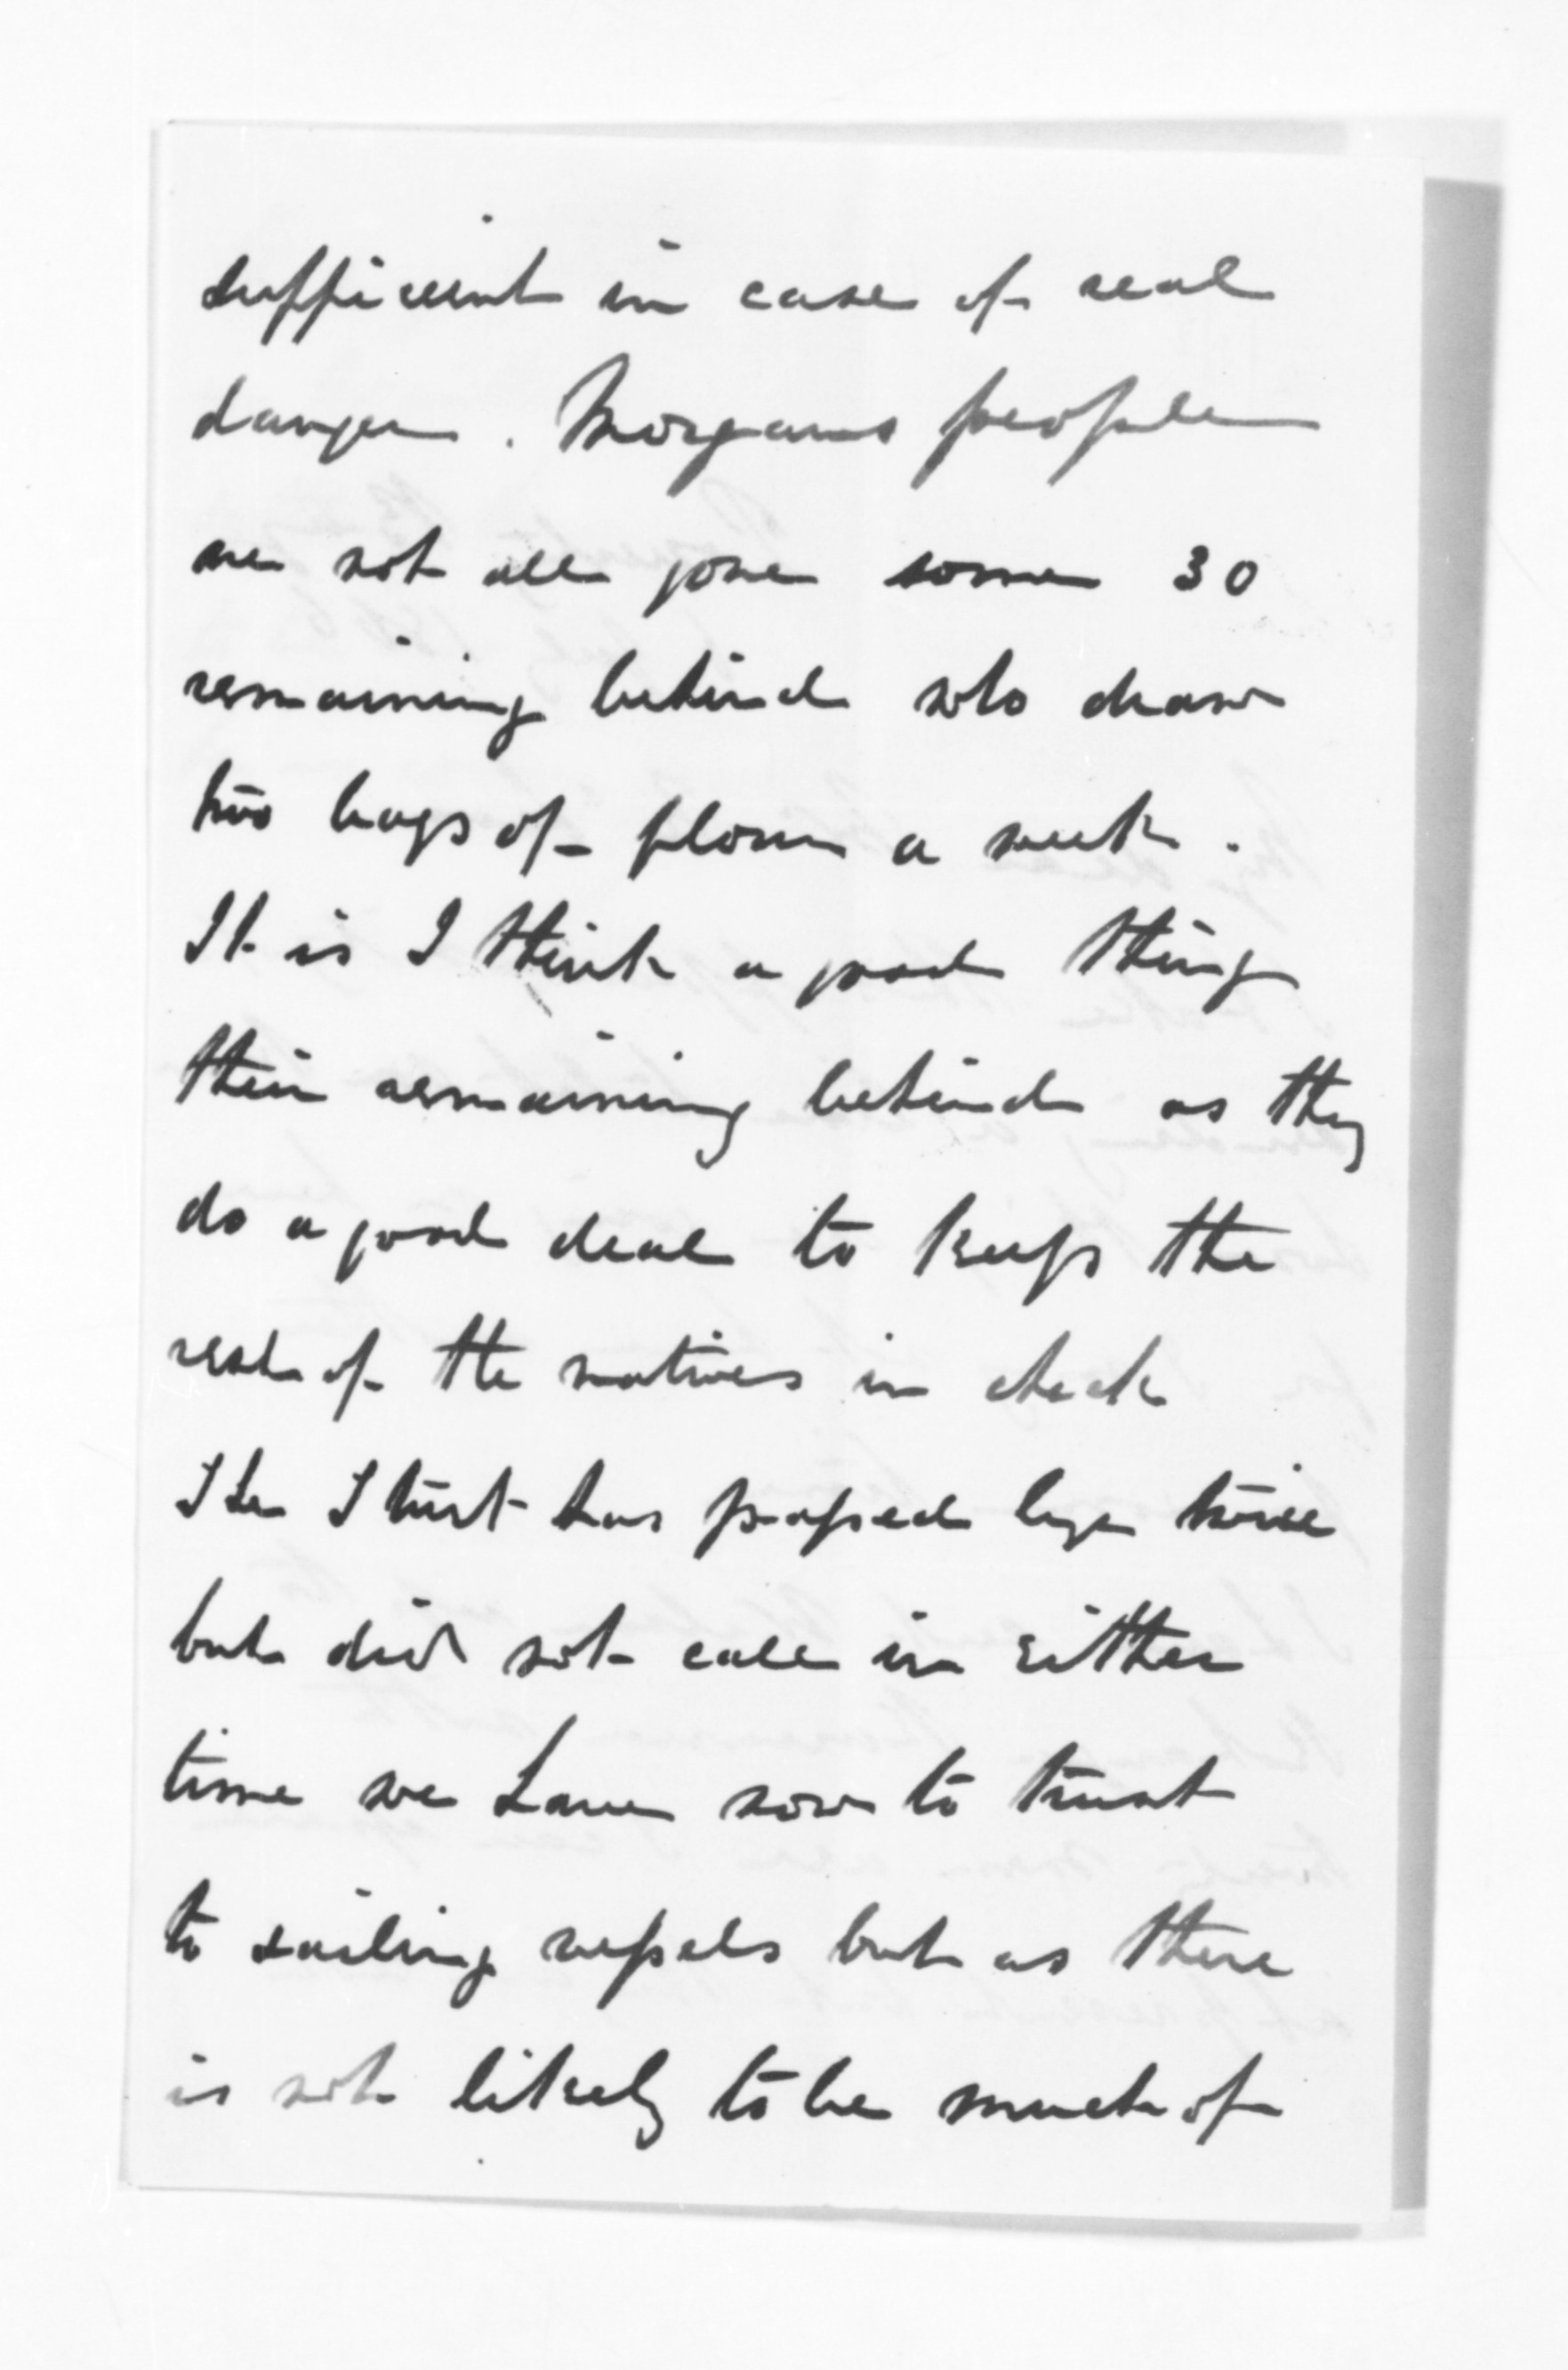 sufficient in case of real
danger. Morgans people
are not all gone some 30
remaining behind who draw
two bags of flour a week.
It is I think a good thing
their remaining behind as they
do a good deal to keep the
rest of the natives in check
The Sturt has passed bye twice
but did not call in either
time we have now to trust
to sailing vessels but as there
is not likely to be much of